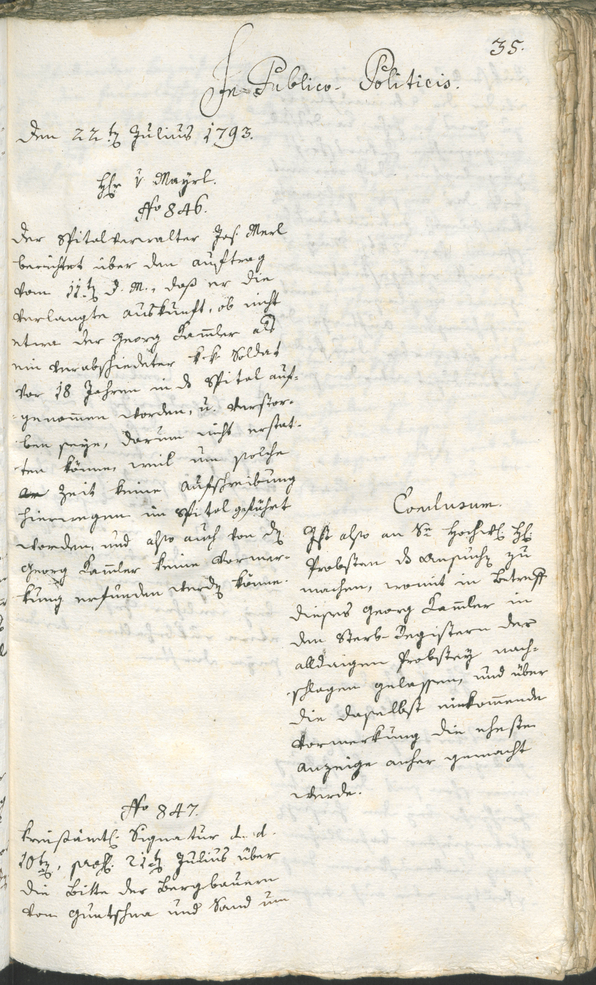 35.
In Publico-Politicis.
Den 22tn Julius 1793.
Hr v Mayrl.
No 846.
Der Spitalverwalter Jos. Merl
berichtet über den auftrag
vom 11tn d. M., daß er die
verlangte auskunft, ob nicht
etwa der Georg Kamler als
ein verabschiedeter kk Soldat
vor 18 Jahren in ds Spital auf-
genommen worden, u. verstor-
ben seye, darum nicht erstat-
ten könne, weil um solche
Zeit keine aufschreibung
hierwegen im Spital geführt
worden, und also auch von dem
Georg Kamler keine Vormer-
kung erfunden werden könne.
Conclusum.
Ist also an Se Hochw. H.
Probsten ds Ansuchen zu
machen, womit in Betreff
dieses Georg Kamler in
den Sterb-Registern der
alldaigen Probstey nach-
schlagen gelassen, und über
die daselbst einkommende
Vormerkung die ehesten
anzeige anher gemacht
werde.
No 847.
Kreisämtl. Signatur d. d.
10tn, pras. 21tn Julius über
die Bitte der Bergbauern
von Guntschna und Sand um